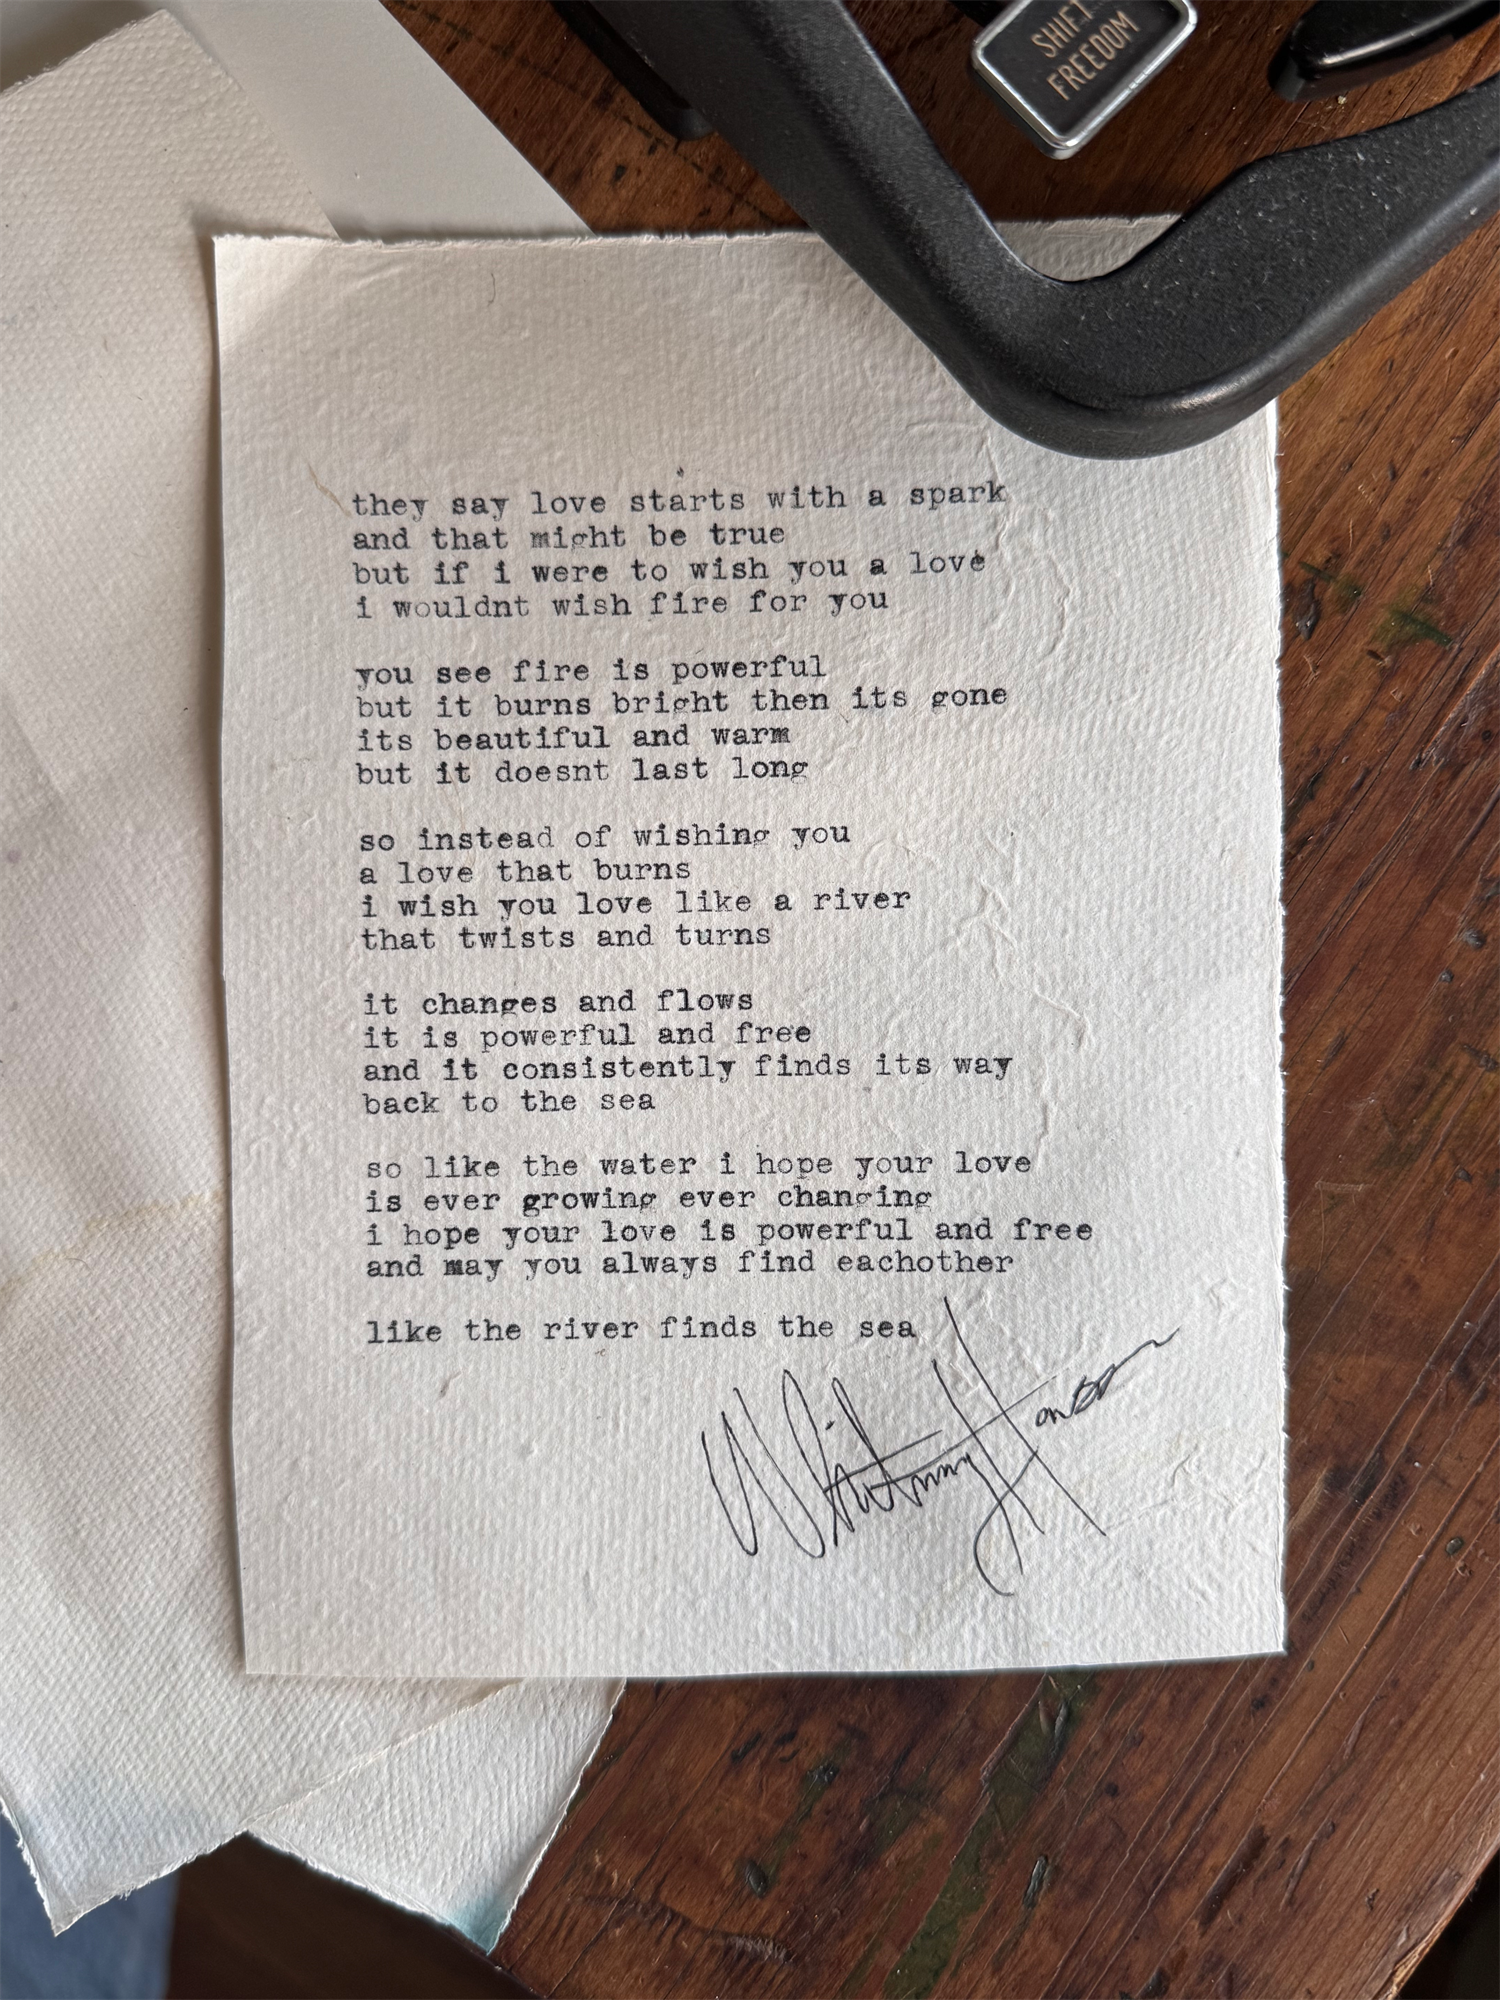 SHIFT
FREEDOM
they say love starts with a spark
and that might be true
but if i were to wish you a love
i wouldnt wish fire for you
you see fire is powerful
but it burns bright then its gone
its beautiful and warm
but it doesnt last long
so instead of wishing you
a love that burns
i wish you love like a river
that twists and turns
it changes and flows
it is powerful and free
and it consistently finds its way
back to the sea
so like the water i hope your love
is ever growing ever changing
i hope your love is powerful and free
and may you always find eachother
like the river finds the sea
Whitney Hanson